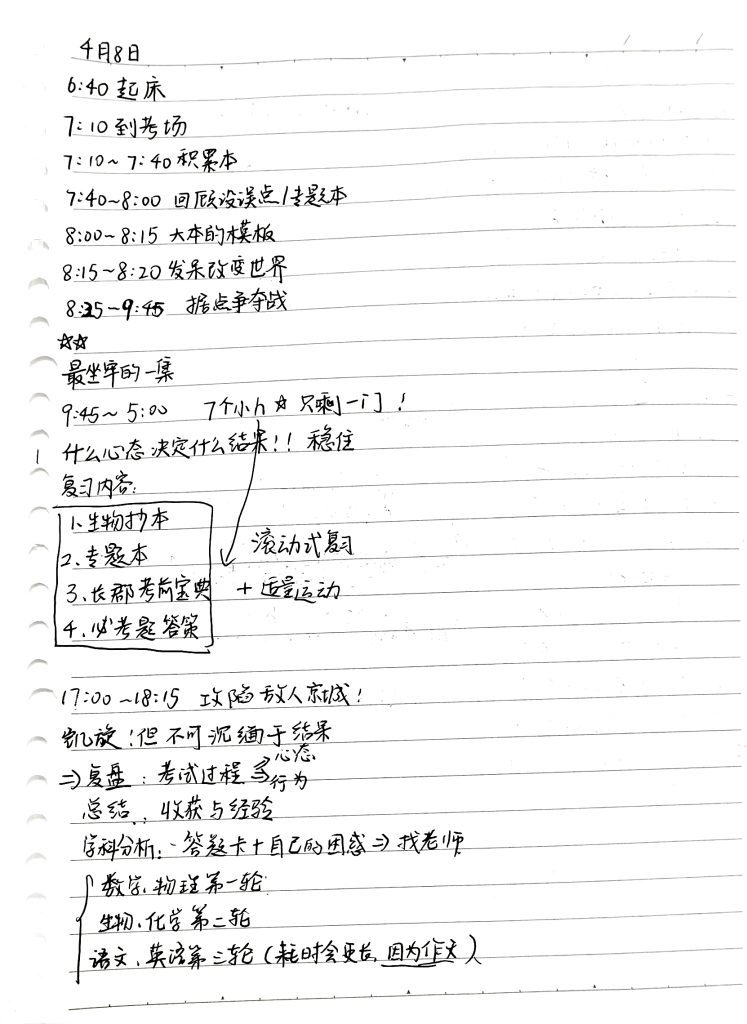 4月8日
6:40 起床
7:10到考场
7:10~7:40 积累本
7:40~8:00 回顾没误点/专题本
8:00~8:15 大本的模板
8:15~8:20 发呆改变世界
8:25-9:45 据点争夺战
☆☆
最坐牢的一集
9:45~5:00 7个小h☆只剩一门!
1 什么心态决定什么结果!! 稳住
复习内容:
1.生物抄本
2.专题本 滚动式复习
3.长郡考前宝典 +适量运动
4.必考题答策
17:00~18:15 攻陷敌人京城!
凯旋!但不可沉缅于结果
⇒复盘:考试过程 心态
行为
总结:收获与经验
学科分析:·答题卡+自己的困惑⇒找老师
数学、物理第一轮
生物、化学第二轮
语文、英语第三轮(耗时会更长,因为作文)